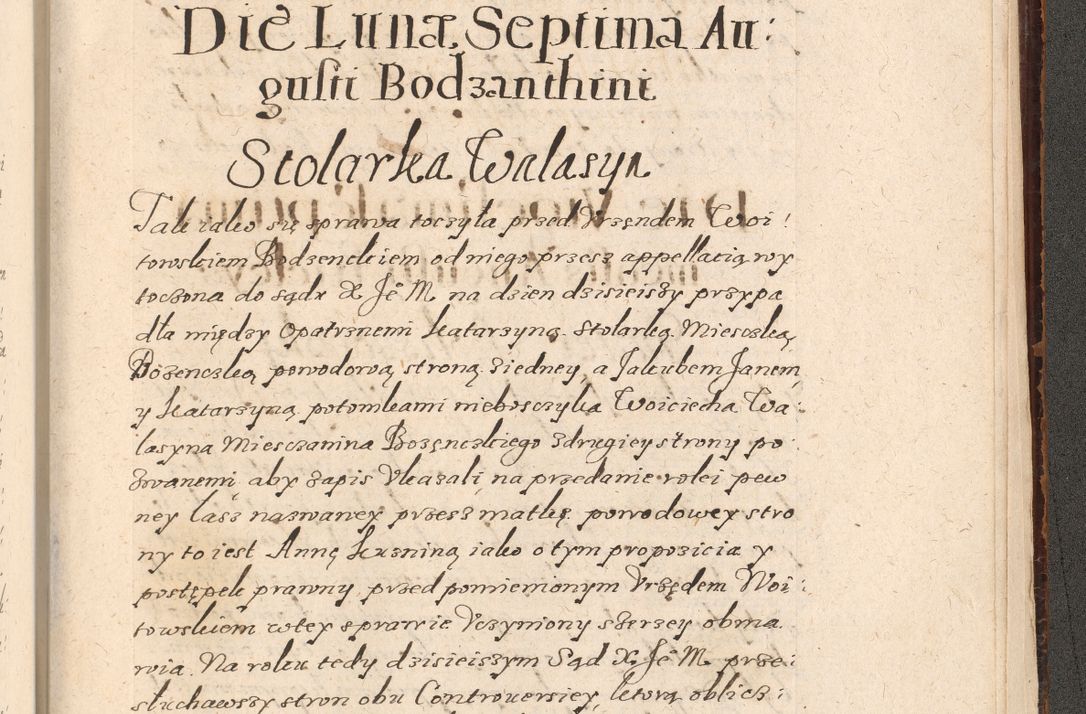 Die Lunæ Septima Au:
gusti Bodzanthini
Stolarka Walasyn
Tak iako się sprawa toczyła przed Vrzęndem Woi:
towskiem Bodzenckiem od niego przesz appellacią wy
toczona do sądx X Je M. na dzien dzisieiszy przypa
dła między Opatrznemi Katarzyną Stolarką Miesczką
Bozenczką powodową stroną ziedney, a Jakubem Janem,
y Katarzyną potomkami nieboszczyka Woiciecha Wa:
lasyna Miesczanina Bozęnczkiego zdrugiey strony po:
zwanemi, aby zapis Vkazali, na przedanie rolei pew
ney lasz nazwaney przesz matkę powodowey stro
ny to iest Annę Kuzniną iako o tym proposicia y
postępek prawny przed pomienionym Vrzędem Woi:
towskiem wtey sprawie Vczyniony szerzey obma
wia. Na roku tedy dzisieiszym Sąd X Je M. prze:
słuchawszy stron obu Controuersiey, ktorą oblicz: